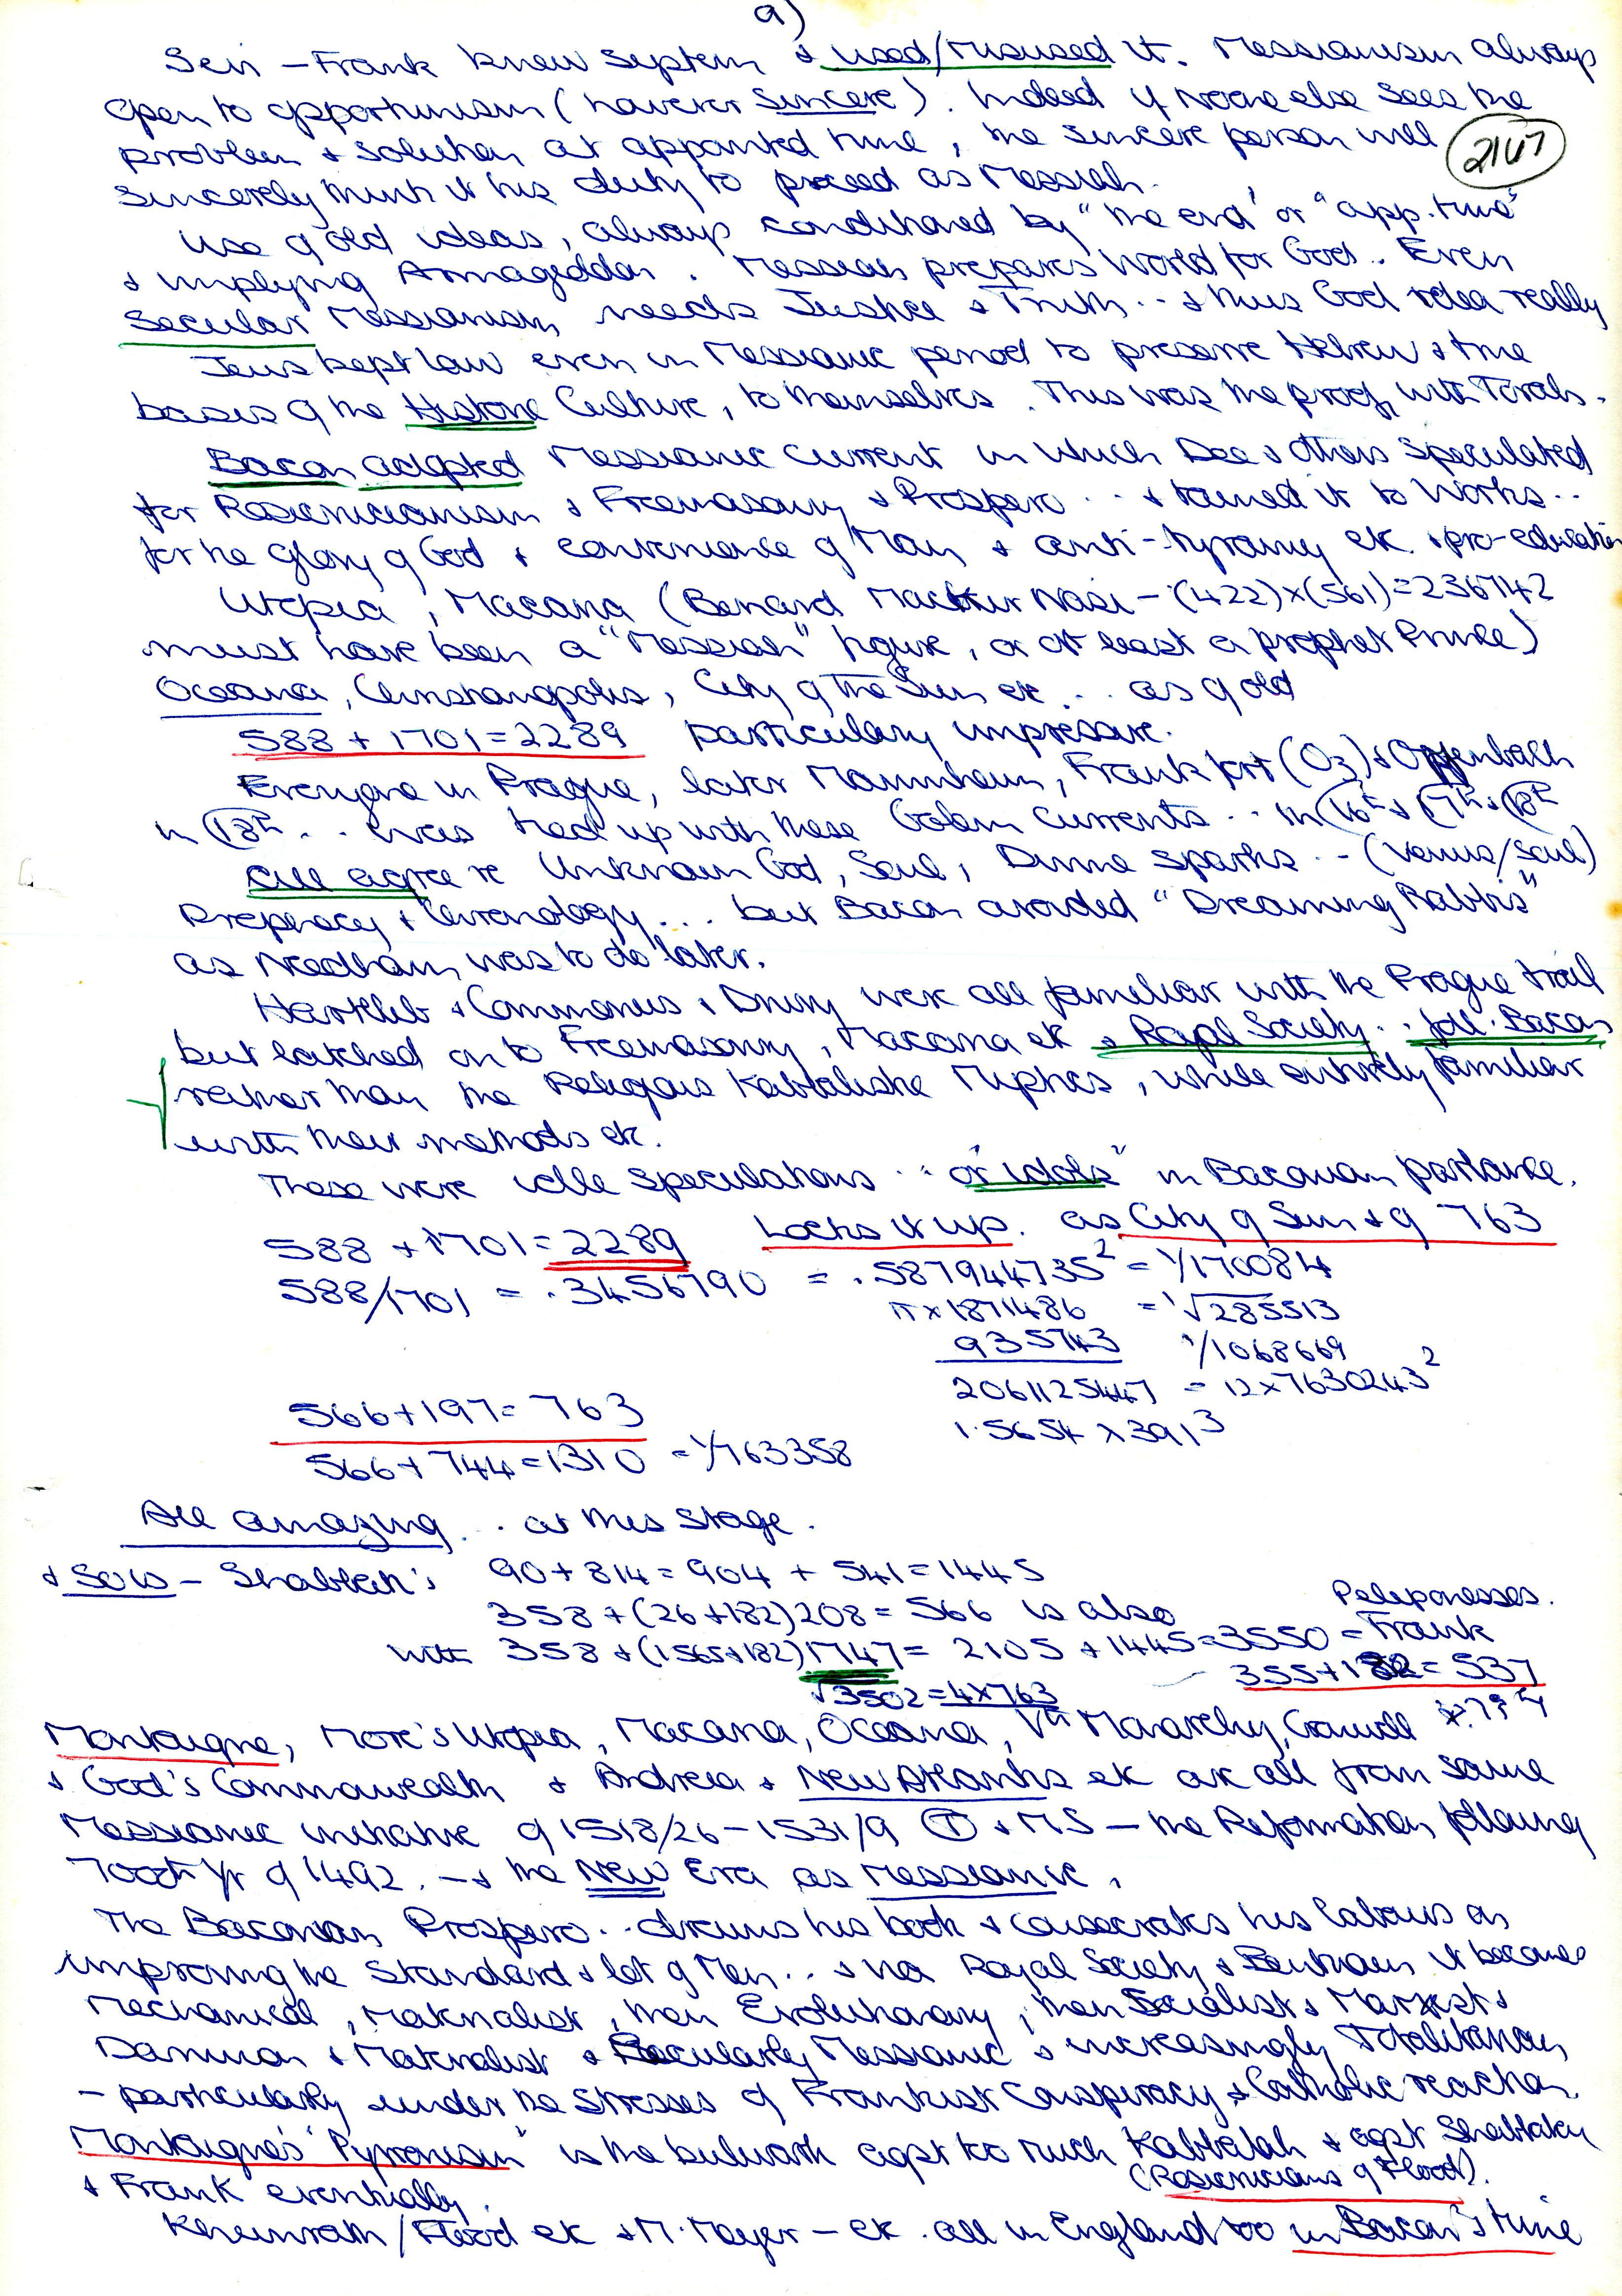 9)
Sevi – Frank knew system & used/misused it. Messianism always
open to opportunism (however sincere). Indeed if no one else sees the
problem & solution at appointed time, the sincere person will
2167
sincerely think it his duty to proceed as Messiah.
Use of old ideas, always conditioned by "the end" or "app. time"
& implying Armageddon. Messiah prepares World for God. Even
Secular Messianism needs Justice & Truth .. & thus God idea really
Jews kept law even in Messianic period to preserve Hebrew & true
basis of the Historic Culture, to themselves. This was the proof, with Torah.
Bacon adopted Messianic current in which Dee & others speculated
for Rosicrucianism & Freemasonry & Prospero .. & turned it to Works ..
for the glory of God & convenience of Man & anti-tyranny etc. & pro-education
Utopia, Macaria (Benard Nasi – (422)x(561)=236742
must have been a "Messiah" figure, or at least a prophet Prince)
Oceana, Christianopolis, City of the Sun etc .. as of old
588 + 1701 = 2289 particularly impressive.
Everyone in Prague, later Mannheim, Frankfort (O3) & Offenbach
in 18th .. was tied up with these Golem currents .. in 16th & 17th & 18th
All agree re Unknown God, Soul, Divine sparks .. (Venus/Soul)
Prophecy & Chronology ... but Bacon avoided "Dreaming Rabbis"
as Needham was to do later.
Hartlib & Commenius & Drury were all familiar with the Prague trail
but latched on to Freemasonry, Macaria etc & Royal Society .. foll. Bacon
rather than the Religious Kabbalistic Myths, while entirely familiar
with their methods etc.
These were idle speculations .. "or idols" in Baconian parlance.
588 + 1701 = 2289 Locks it up. as City of Sun & of 763
588/1701 = .3456790 = .587944735² = 1/170084
π x 1871486 = √285513
935743 1/1068669
2061125447 = 12x7630243²
1.5654 x 391³
566+197= 763
566+744=1310 = 1/763358
All amazing .. at this stage.
& so is – Shabbetai's 90+814=904 + 541=1445
358+(26+182)208= 566 is also
Peloponesses.
with 358+(1565+182)1747= 2105 + 1445=3550 = Frank
355+182= 537
√3502 = 4x763
Montaigne, More's Utopia, Macaria, Oceana, Vth Monarchy, Cromwell
& God's Commonwealth & Andrea & New Atlantis etc are all from same
Messianic initiative of 1518/26–1531/9 T & MS – the Reformation following
700th Yr of 1492. – & the New Era as Messianic.
The Baconian Prospero .. drowns his book & consecrates his labours on
improving the Standard & lot of Men .. & via Royal Society & Bentham it became
Mechanical, Materialist, then Evolutionary, then Socialist & Marxist &
Darwinian & Materialist & Secularly Messianic & increasingly Totalitarian
– particularly under the stresses of Frankist Conspiracy & Catholic reaction.
Montaigne's "Pyrronism" is the bulwark agst too much Kabbalah & agst Shabbatai
(Rosicrucians of Flood).
& Frank eventually.
Khunrath/Flood etc & M. Mayer – etc. all in England too in Bacon's time